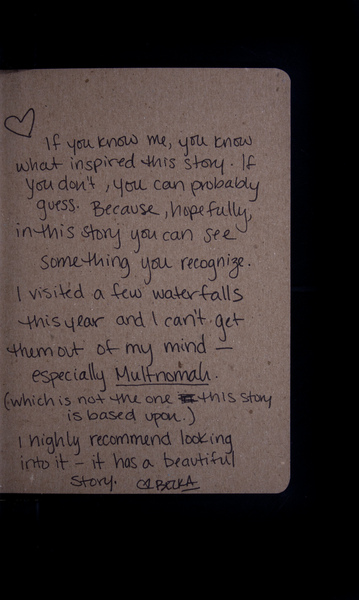 If you know me, you know
what inspired this story. If
you don't, you can probably
guess. Because, hopefully,
in this story you can see
something you recognize.
I visited a few waterfalls
this year and I can't get
them out of my mind —
especially Multnomah.
(which is not the one this story
is based upon.)
I highly recommend looking
into it – it has a beautiful
story. BECKA